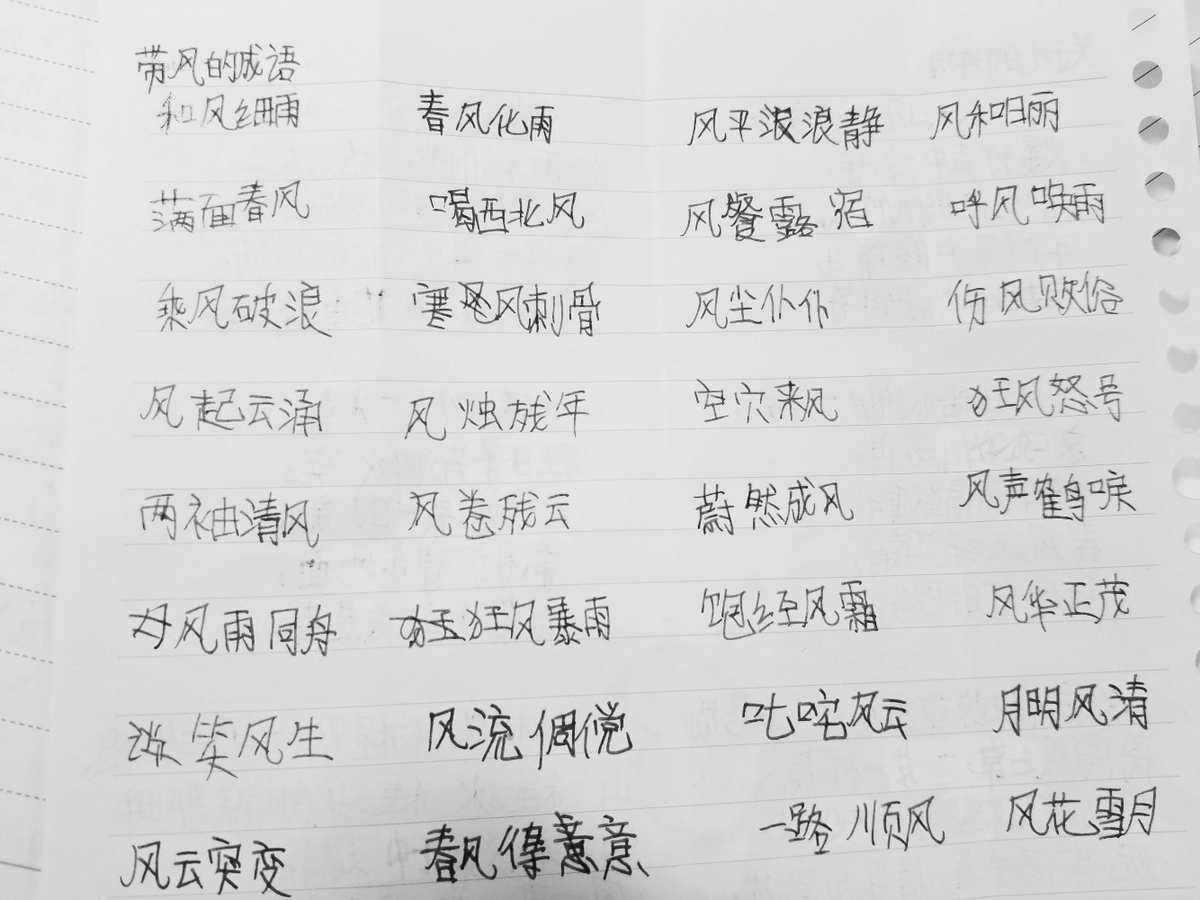 带风的成语
和风细雨 春风化雨 风平浪浪静 风和日丽
满面春风 喝西北风 风餐露宿 呼风唤雨
乘风破浪 寒风刺骨 风尘仆仆 伤风败俗
风起云涌 风烛残年 空穴来风 狂风怒号
两袖清风 风卷残云 蔚然成风 风声鹤唳
风雨同舟 狂风暴雨 饱经风霜 风华正茂
谈笑风生 风流倜傥 叱咤风云 月明风清
风云突变 春风得意 一路顺风 风花雪月